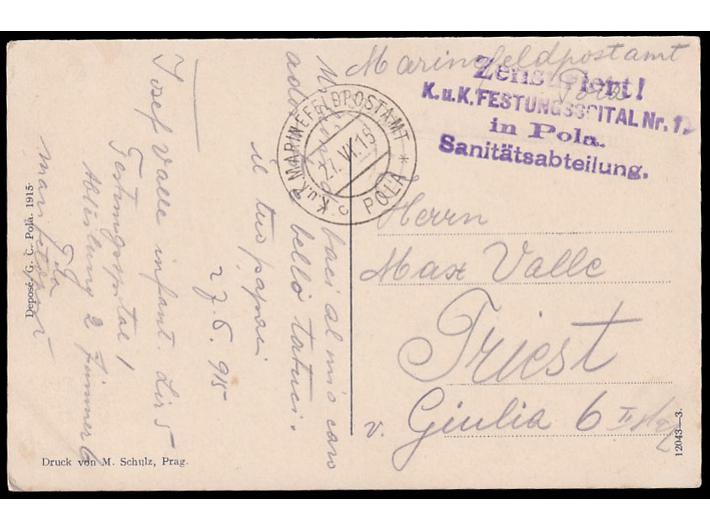 Marinefeldpostamt
Pola
Zensuriert!
K.u.K. FESTUNGSSPITAL Nr. 1
in Pola.
Sanitätsabteilung.
K.u.K. MARINEFELDPOSTAMT
27. VI. 15
POLA
Herrn
Max Valle
Triest
v. Giulia 6 II
baci al mio caro
adorato bello
il tuo papai
27.6.915
Josef Valle infant. Lir 5
Festungsspital 1
Abteilung 2 Zimmer 6
Pola
Deposé. G. C. Pola. 1915.
Druck von M. Schulz, Prag.
12043—3.